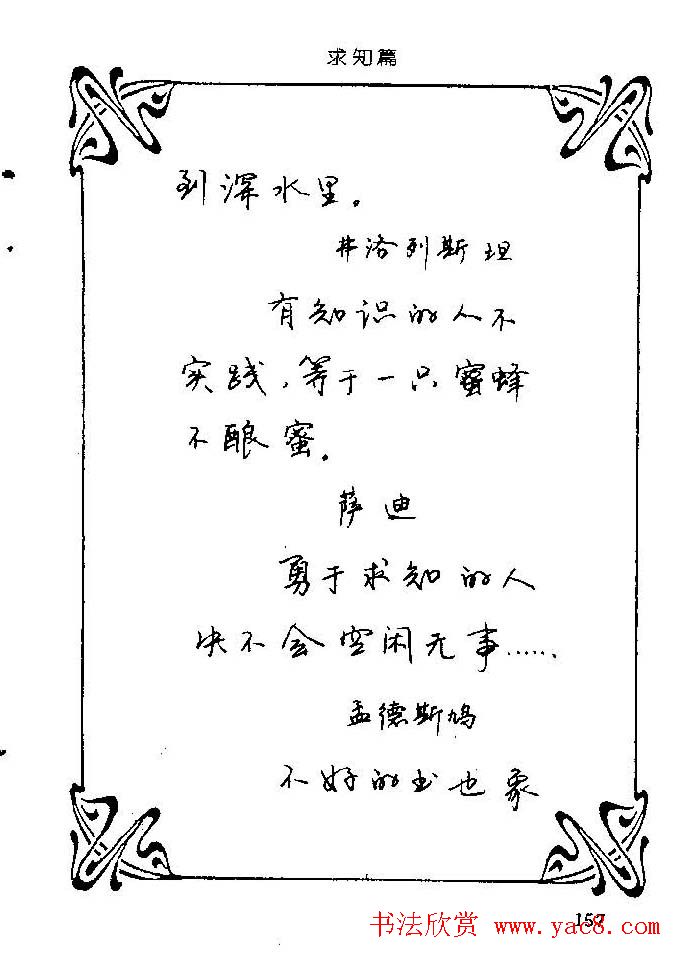 求知篇
到深水里。
弗洛列斯坦
有知识的人不
实践，等于一只蜜蜂
不酿蜜。
萨迪
勇于求知的人
决不会空闲无事……
孟德斯鸠
不好的书也象
157
书法欣赏 www.yac8.com